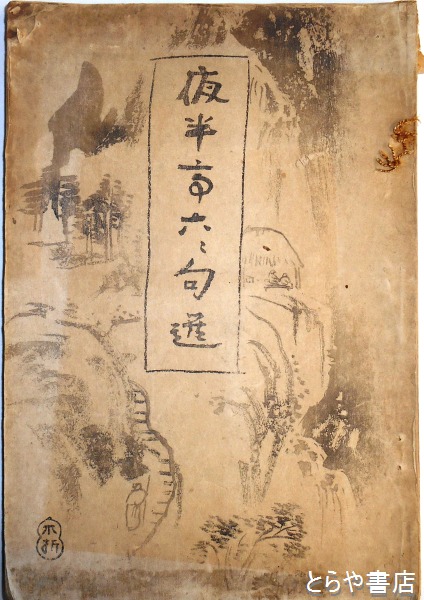 夜半亭六〻句選
不折
とらや書店